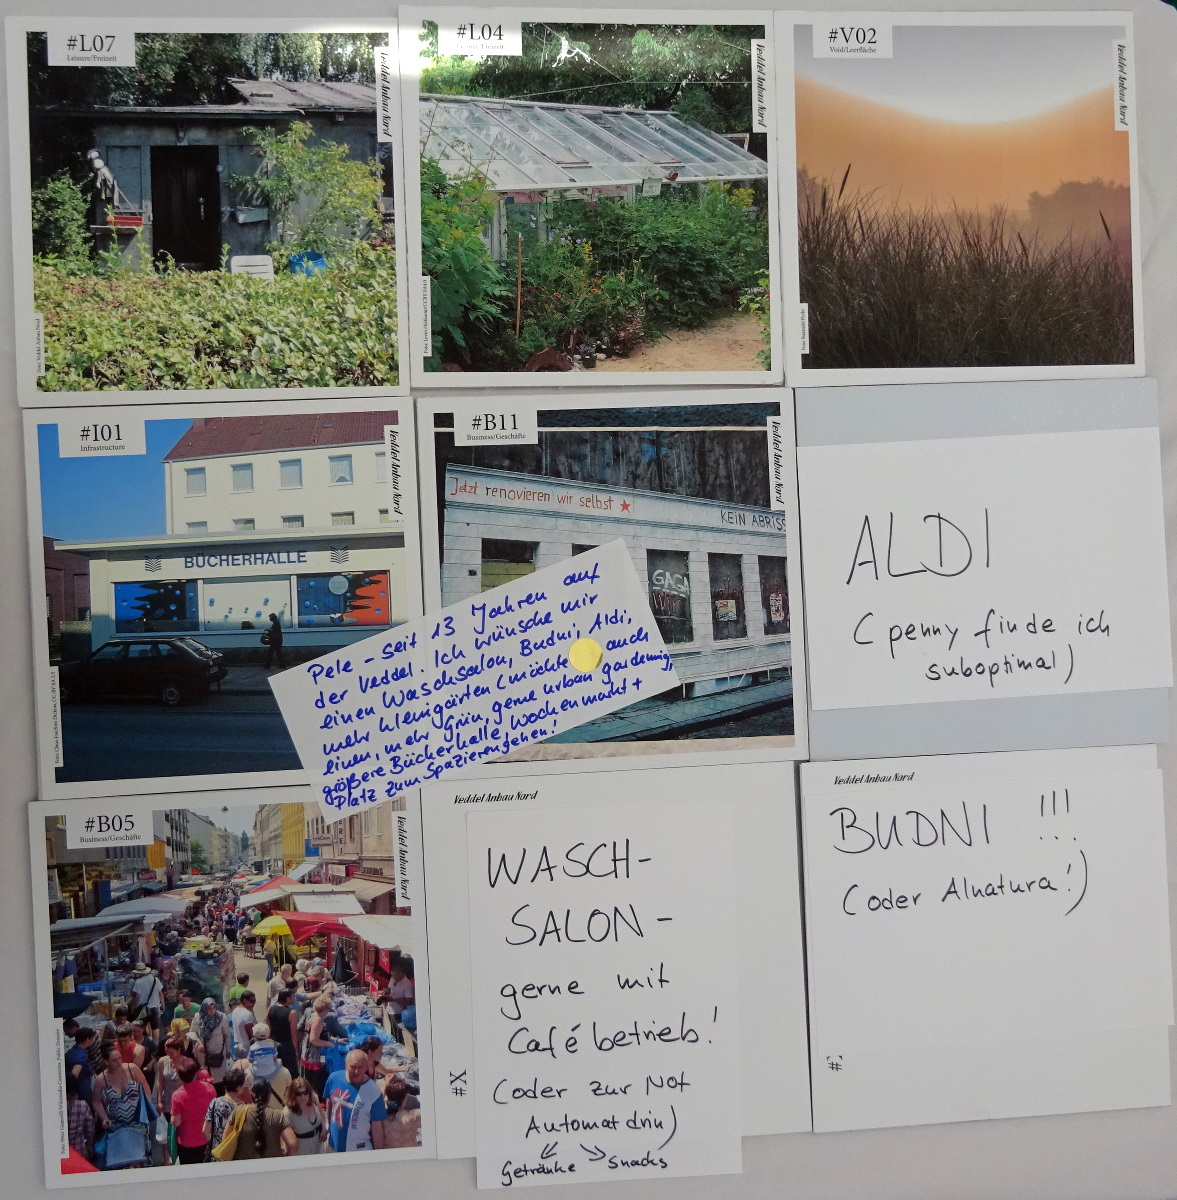 #L07
Leisure/Freizeit
Veddel Anbau Nord
Foto: Veddel Anbau Nord
#L04
Leisure/Freizeit
Veddel Anbau Nord
#V02
Void/Leerfläche
Veddel Anbau Nord
#I01
Infrastructure
Veddel Anbau Nord
BÜCHERHALLE
#B11
Business/Geschäfte
Veddel Anbau Nord
Jetzt renovieren wir selbst ★
KEIN ABRISS
GAGA
ALDI
(penny finde ich
suboptimal)
Pele - seit 13 Jahren auf
der Veddel. Ich wünsche mir
einen Waschsalon, Budni, Aldi,
mehr Kleingärten (möchte auch
einen, mehr Grün, gerne urban gardening,
größere Bücherhalle Wochenmarkt +
Platz zum Spazierengehen!
#B05
Business/Geschäfte
Veddel Anbau Nord
Veddel Anbau Nord
WASCH-
SALON-
gerne mit
Cafébetrieb!
(oder zur Not
Automat drin)
Getränke Snacks
#X
Veddel Anbau Nord
BUDNI !!!
(oder Alnatura!)
#